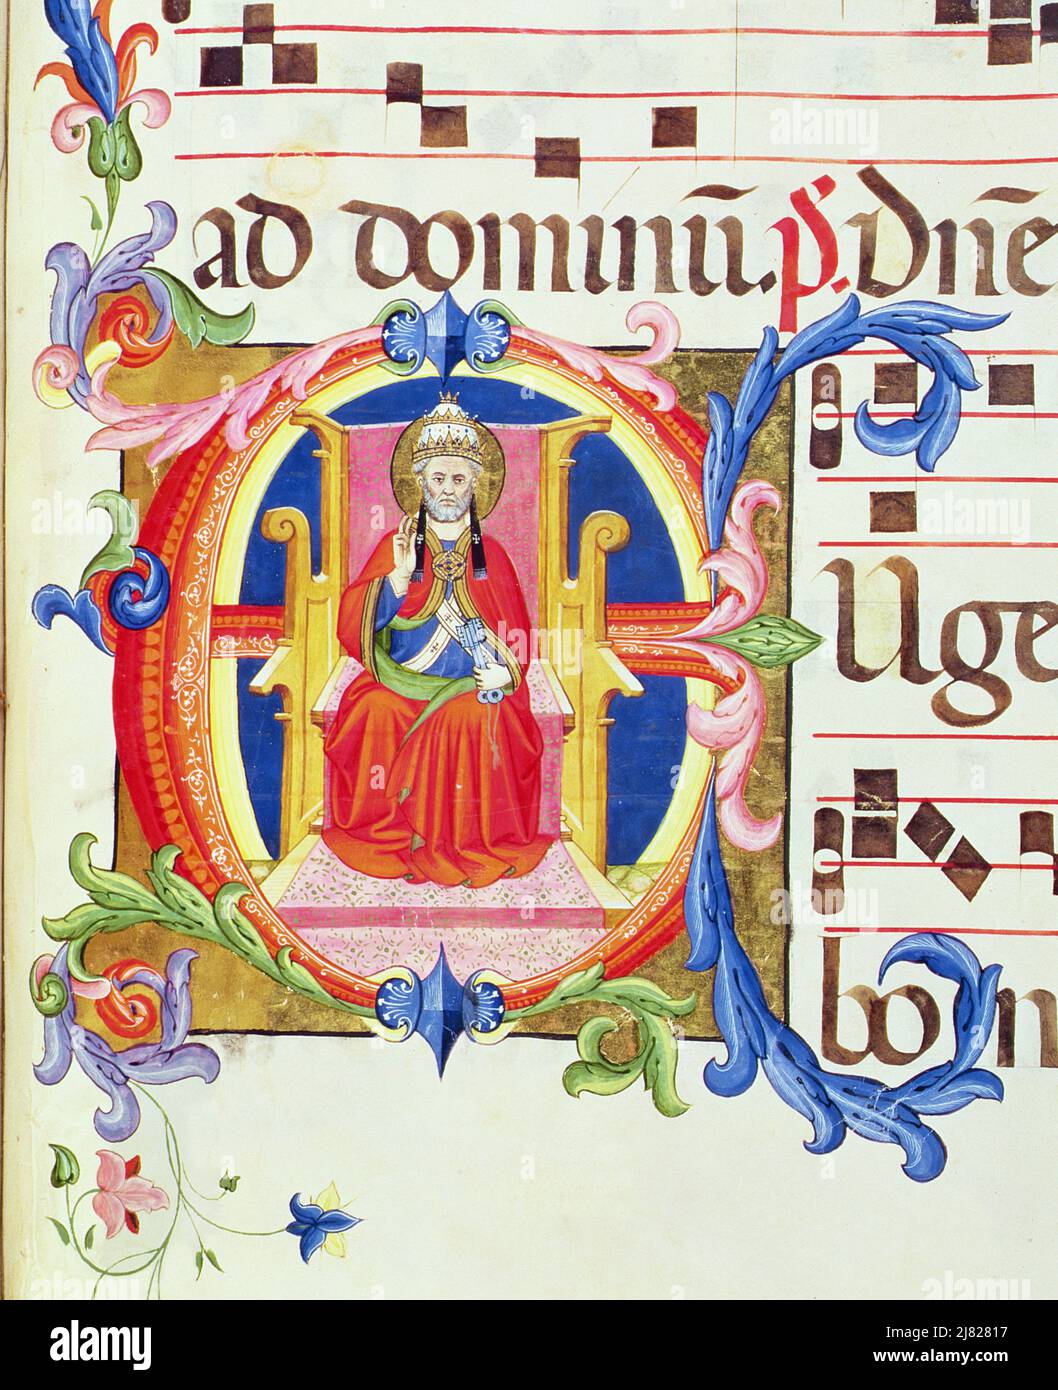 ad dominū. ps. Dn̄e
E
Uge
bon
alamy
Image ID: 2J82817
www.alamy.com